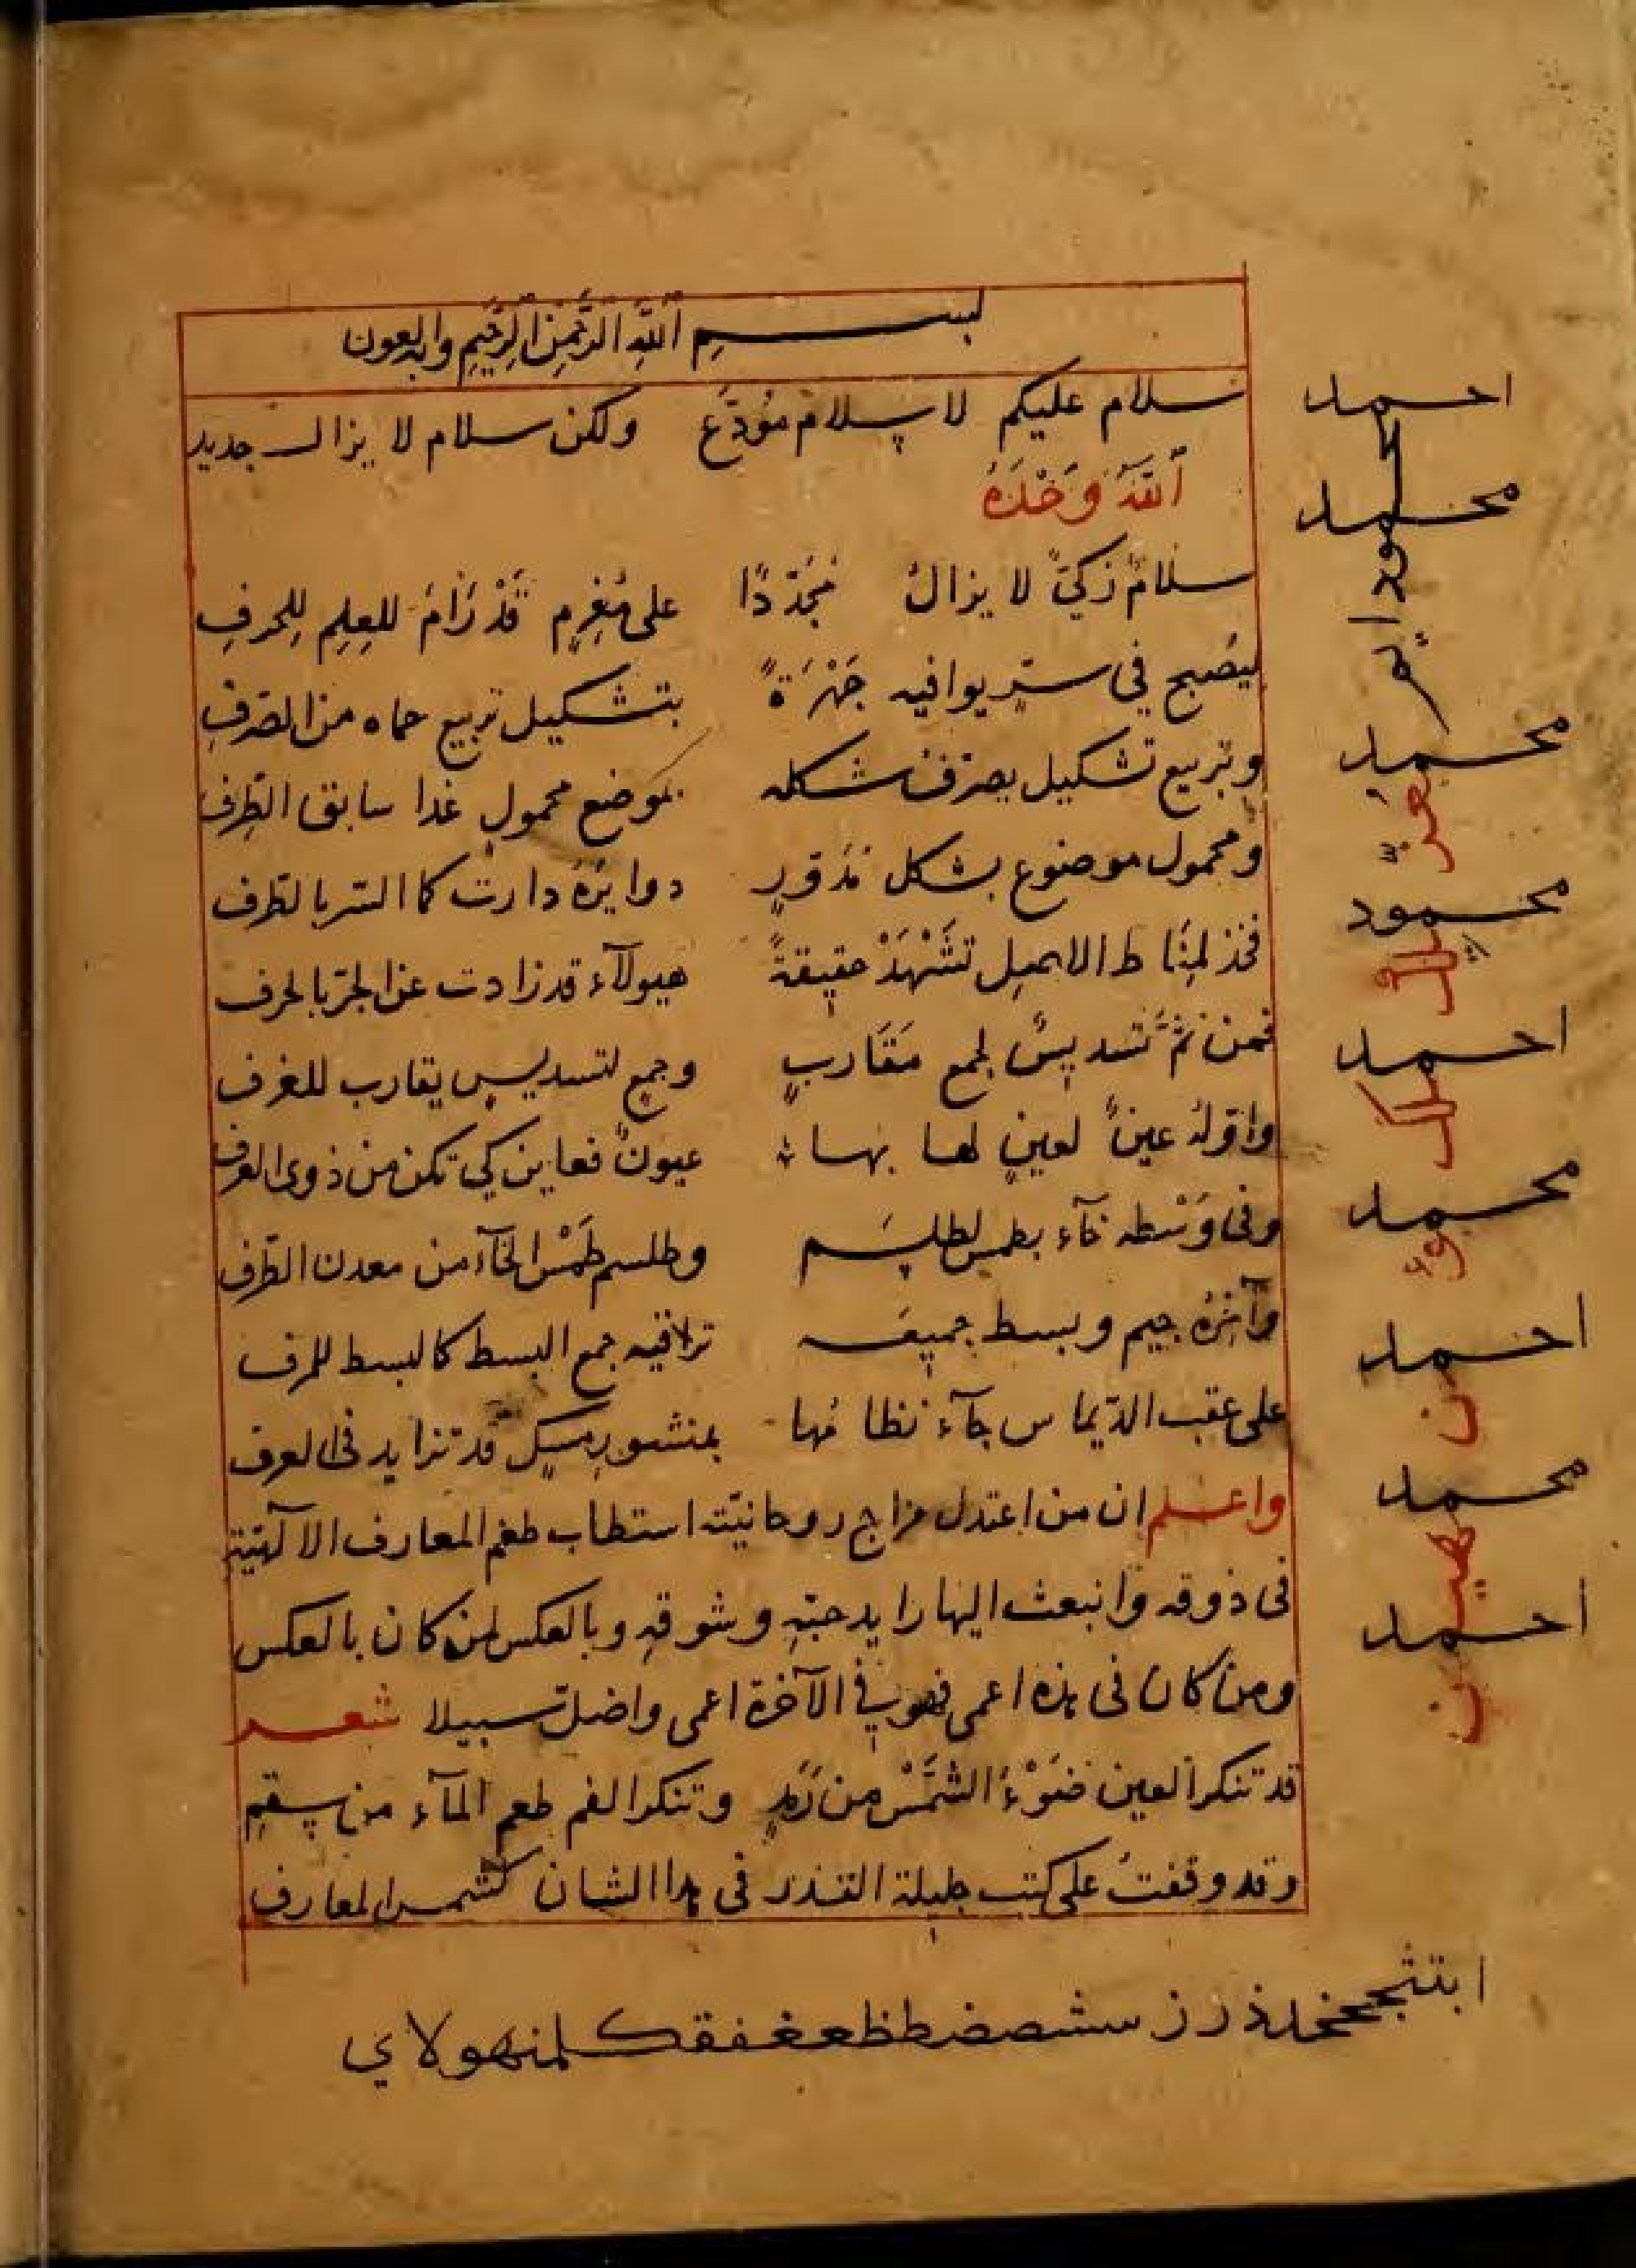 بسم اللّٰهِ الرَّحْمٰنِ الرَّحِيمِ وبه العون
سلام عليكم لا سلام مُوَدِّعٍ ولكن سلام لا يزال جديد
اَللّٰهُ وَحْدَهُ
سلامٌ زكيّ لا يزالُ مُجَدّدًا على مُغْرِمٍ قَدْ رَامَ للعِلمِ لِلحرفِ
ليُصبح في سرّ يوافيه جَهْرَةً بتشكيل تربيع حماه من الصّرفِ
وتربيع تشكيل بصرف شكله بموضع محمول غدا سابق الطَّرف
ومحمول موضوع بشكل مُدَوّرٍ دوايرهُ دارت كما السّر بالطّرف
فخذ تَشْهَدْ حقيقةً هيولآء قد زادت عن الجرّ بالحرف
فمن ثمّ تسديسٌ لجمع مَقَاربٍ وجمع لتسديس يقارب للغرف
واوّله عينٌ لعينٍ لها بها عيونٌ فعاين كي تكن من ذوى العرف
وفى وَسْطه خآء بطمس لطلسم وطلسم طَمْس الخآء من معدن الظّرف
وآخرُه جيم وبسط جميعه تلاقيه جمع البسط كالبسط للحرف
على عقب الدّيماس جآء نظامُها بمنشور مسكٍ قد تزايد فى العرف
واعلم ان من اعتدل مزاج روحانيّته استطاب طعم المعارف الالهيّة
فى ذوقه وانبعث اليها رايد حبّهِ وشوقهِ وبالعكس لمن كان بالعكس
ومن كان فى هذه اعمى فهو في الآخرة اعمى واضلّ سبيلا شعر
قد تنكر العين ضَوْءَ الشَّمْسِ من رَمَدٍ وتنكر الفم طعم المآء من سقمِ
وقد وقفتُ على كتب جليلة القدر فى هذا الشان كشمس المعارف
احمد
محمد
محمد
محمود
احمد
محمد
احمد
محمد
احمد
ابتثجحخدذرز سشصضطظعغفقكلمنهولاي